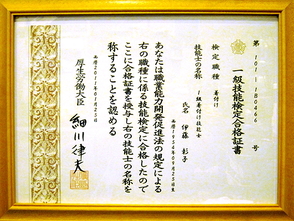 第 10-1-180466 号
一級技能検定合格証書
検定職種 着付け
技能士の名称 1級着付け技能士
氏名 伊藤 彰子
西暦1954年09月25日生
あなたは職業能力開発促進法の規定による
右の職種に係る技能検定に合格したので
ここに合格証書を交付し右の技能士の名称を
称することを認める
西暦2011年01月25日
厚生労働大臣 細川律夫